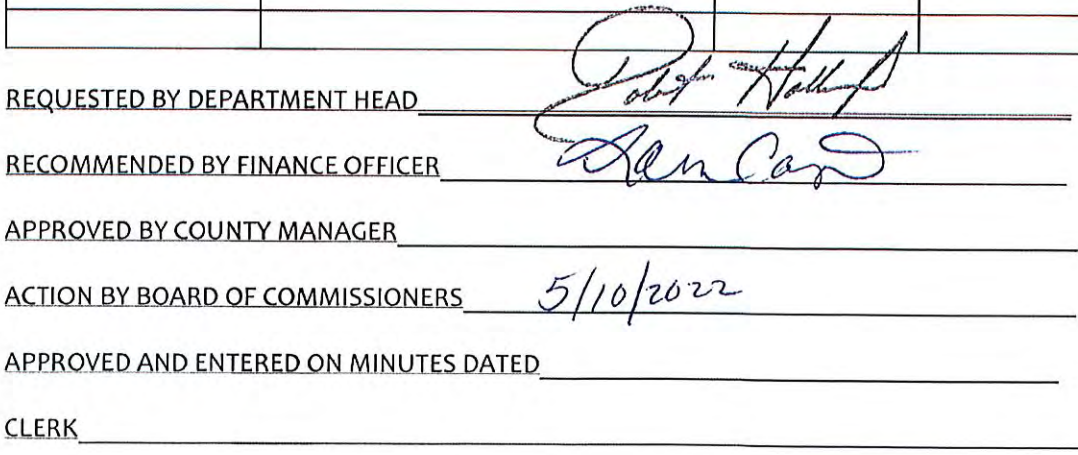 REQUESTED BY DEPARTMENT HEAD
RECOMMENDED BY FINANCE OFFICER
APPROVED BY COUNTY MANAGER
ACTION BY BOARD OF COMMISSIONERS 5/10/2022
APPROVED AND ENTERED ON MINUTES DATED
CLERK